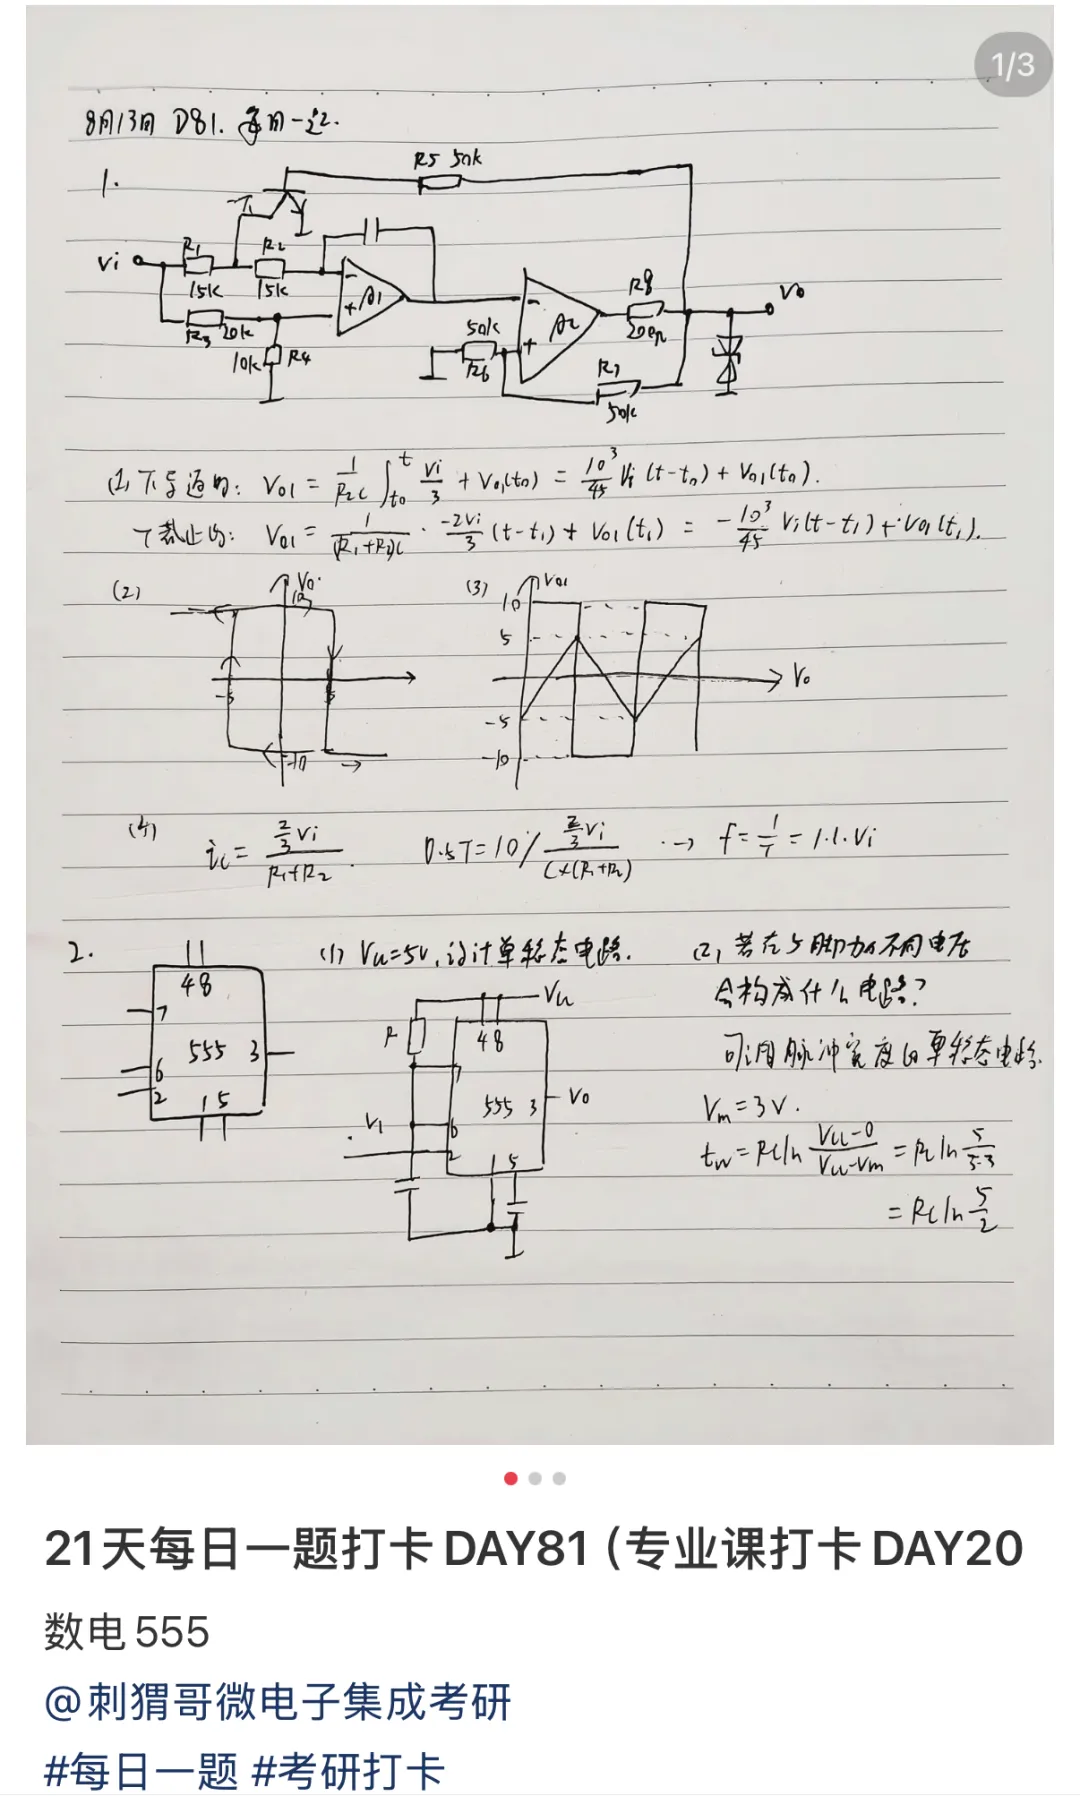 1/3
8月13日 D81. 每日一题.
1.
R5 50k
T
Vi
R1
R2
15k
15k
A1
R3 20k
10k
R4
A2
R8
200Ω
V0
50k
R6
R7
50k
(1) T导通时: Vo1 = 1/R2C ∫t0 t Vi/3 + Vo1(t0) = 10³/45 Vi (t-t0) + Vo1(t0).
T截止时: Vo1 = 1/(R1+R2)C · -2Vi/3 (t-t1) + Vo1(t1) = -10³/45 Vi(t-t1) + Vo1(t1).
(2)
V0
10
-5
5
-10
(3)
Vo1
10
5
-5
-10
V0
(4)
ic = 2/3 Vi / R1+R2
0.5T = 10 / 2/3 Vi / C×(R1+R2)
→ f = 1/T = 1.1·Vi
2.
4 8
7
555 3
6
2
1 5
(1) Vcc=5V, 设计单稳态电路.
Vcc
R
4 8
7
555 3
V0
V1
6
2
1 5
(2) 若在5脚加不同电压
会构成什么电路?
可调脉冲宽度的单稳态电路.
Vm=3V.
tw = RC ln Vcc-0/Vcc-Vm = RC ln 5/5-3
= RC ln 5/2
21天每日一题打卡DAY81（专业课打卡DAY20
数电555
@刺猬哥微电子集成考研
#每日一题 #考研打卡